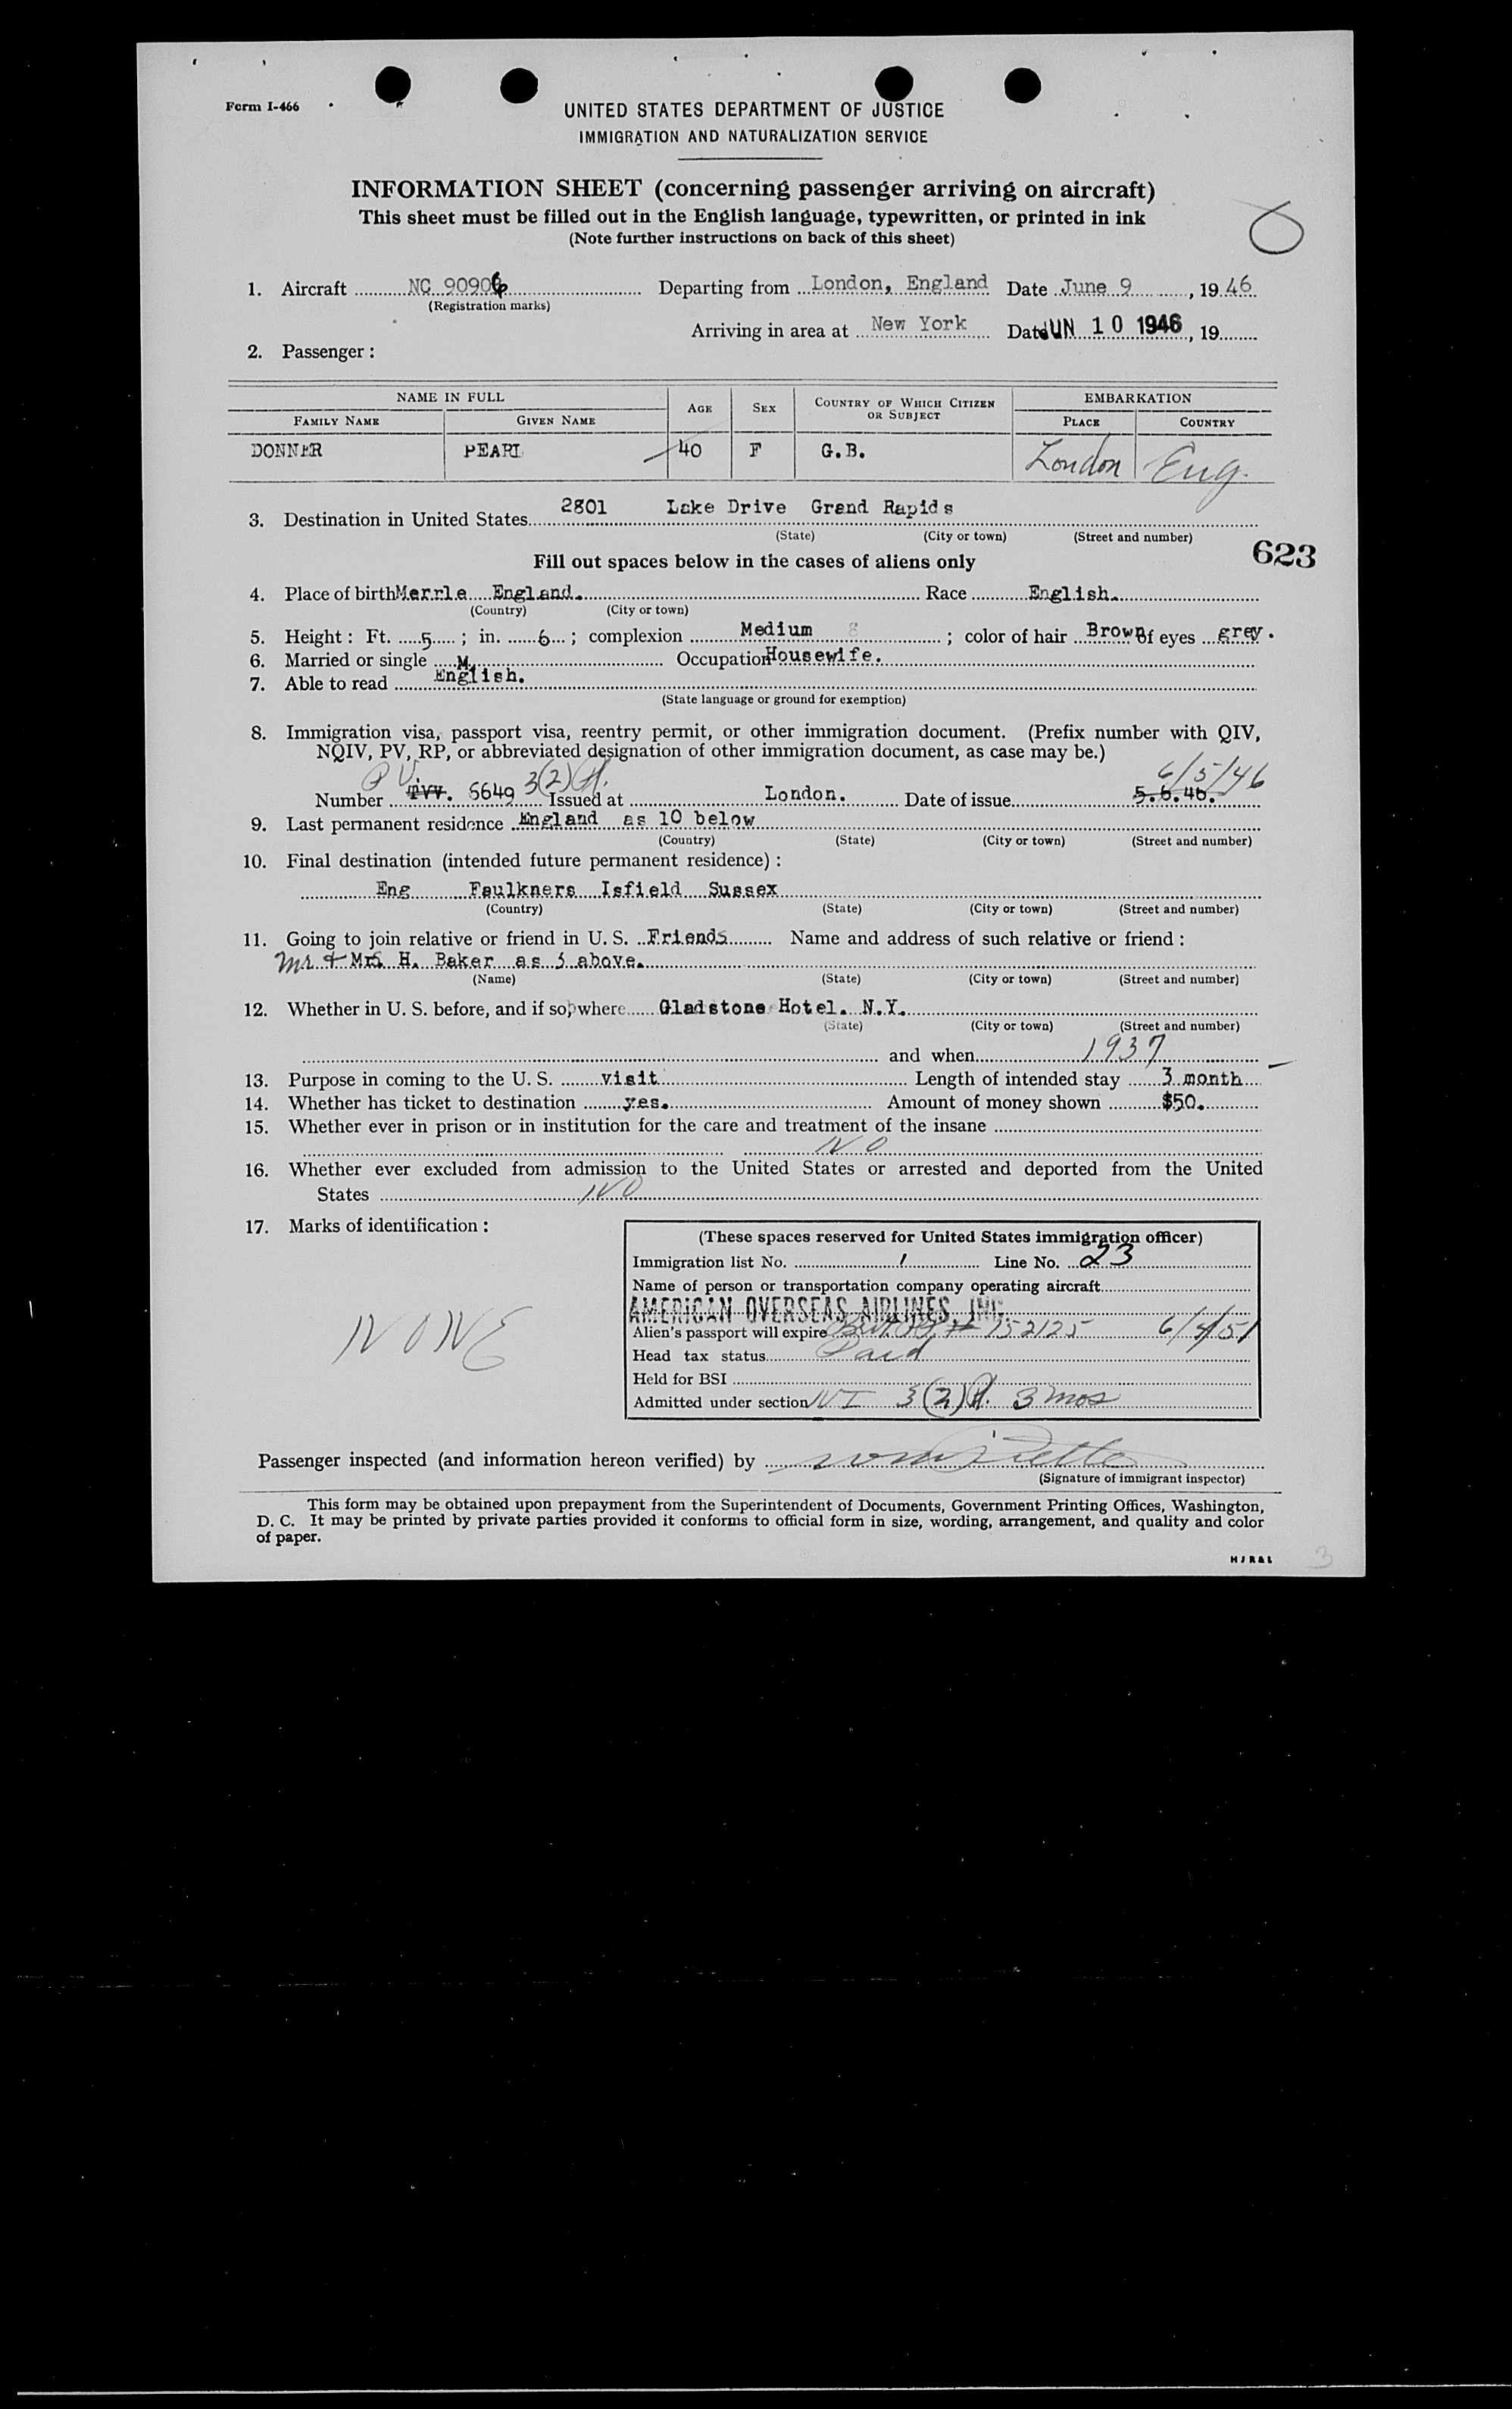 Form I-466
UNITED STATES DEPARTMENT OF JUSTICE
IMMIGRATION AND NATURALIZATION SERVICE
INFORMATION SHEET (concerning passenger arriving on aircraft)
This sheet must be filled out in the English language, typewritten, or printed in ink
(Note further instructions on back of this sheet)
1. Aircraft NC 90906 Departing from London, England Date June 9, 1946
(Registration marks)
Arriving in area at New York Date JUN 10 1946, 19
2. Passenger :
NAME IN FULL AGE SEX COUNTRY OF WHICH CITIZEN OR SUBJECT EMBARKATION
FAMILY NAME GIVEN NAME PLACE COUNTRY
DONNER PEARL 40 F G.B. London Eng.
3. Destination in United States 2801 Lake Drive Grand Rapids
(State) (City or town) (Street and number)
623
Fill out spaces below in the cases of aliens only
4. Place of birth Merrle England. Race English.
(Country) (City or town)
5. Height : Ft. 5 ; in. 6 ; complexion Medium ; color of hair Brown of eyes grey.
6. Married or single M. Occupation Housewife.
7. Able to read English.
(State language or ground for exemption)
8. Immigration visa, passport visa, reentry permit, or other immigration document. (Prefix number with QIV,
NQIV, PV, RP, or abbreviated designation of other immigration document, as case may be.)
PV 3(2) 6/5/46
Number 6649 Issued at London. Date of issue 5.6.46.
9. Last permanent residence England as 10 below
(Country) (State) (City or town) (Street and number)
10. Final destination (intended future permanent residence) :
Eng Faulkners Isfield Sussex
(Country) (State) (City or town) (Street and number)
11. Going to join relative or friend in U. S. Friends Name and address of such relative or friend :
Mr & Mrs H. Baker as 3 above.
(Name) (State) (City or town) (Street and number)
12. Whether in U. S. before, and if so, where Gladstone Hotel. N.Y.
(State) (City or town) (Street and number)
and when 1937
13. Purpose in coming to the U. S. visit Length of intended stay 3 month
14. Whether has ticket to destination yes. Amount of money shown $50.
15. Whether ever in prison or in institution for the care and treatment of the insane
NO
16. Whether ever excluded from admission to the United States or arrested and deported from the United
States NO
17. Marks of identification :
NONE
(These spaces reserved for United States immigration officer)
Immigration list No. 1 Line No. 23
Name of person or transportation company operating aircraft
AMERICAN OVERSEAS AIRLINES, INC.
Alien's passport will expire Brit PP # 152125 6/4/51
Head tax status Paid
Held for BSI
Admitted under section 3(2) 3 mos
Passenger inspected (and information hereon verified) by
(Signature of immigrant inspector)
This form may be obtained upon prepayment from the Superintendent of Documents, Government Printing Offices, Washington,
D. C. It may be printed by private parties provided it conforms to official form in size, wording, arrangement, and quality and color
of paper.
H J R & L
3